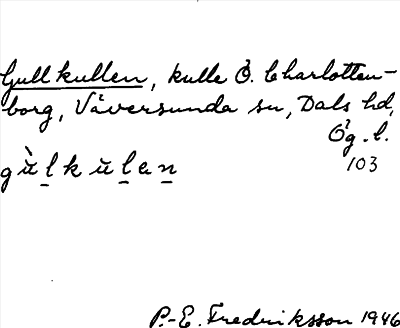 Gullkullen, kulle Ö. Charlotten-
borg, Väversunda sn, Dals hd,
Ög. l.
103
gùlkulen
P.-E. Fredriksson 1946